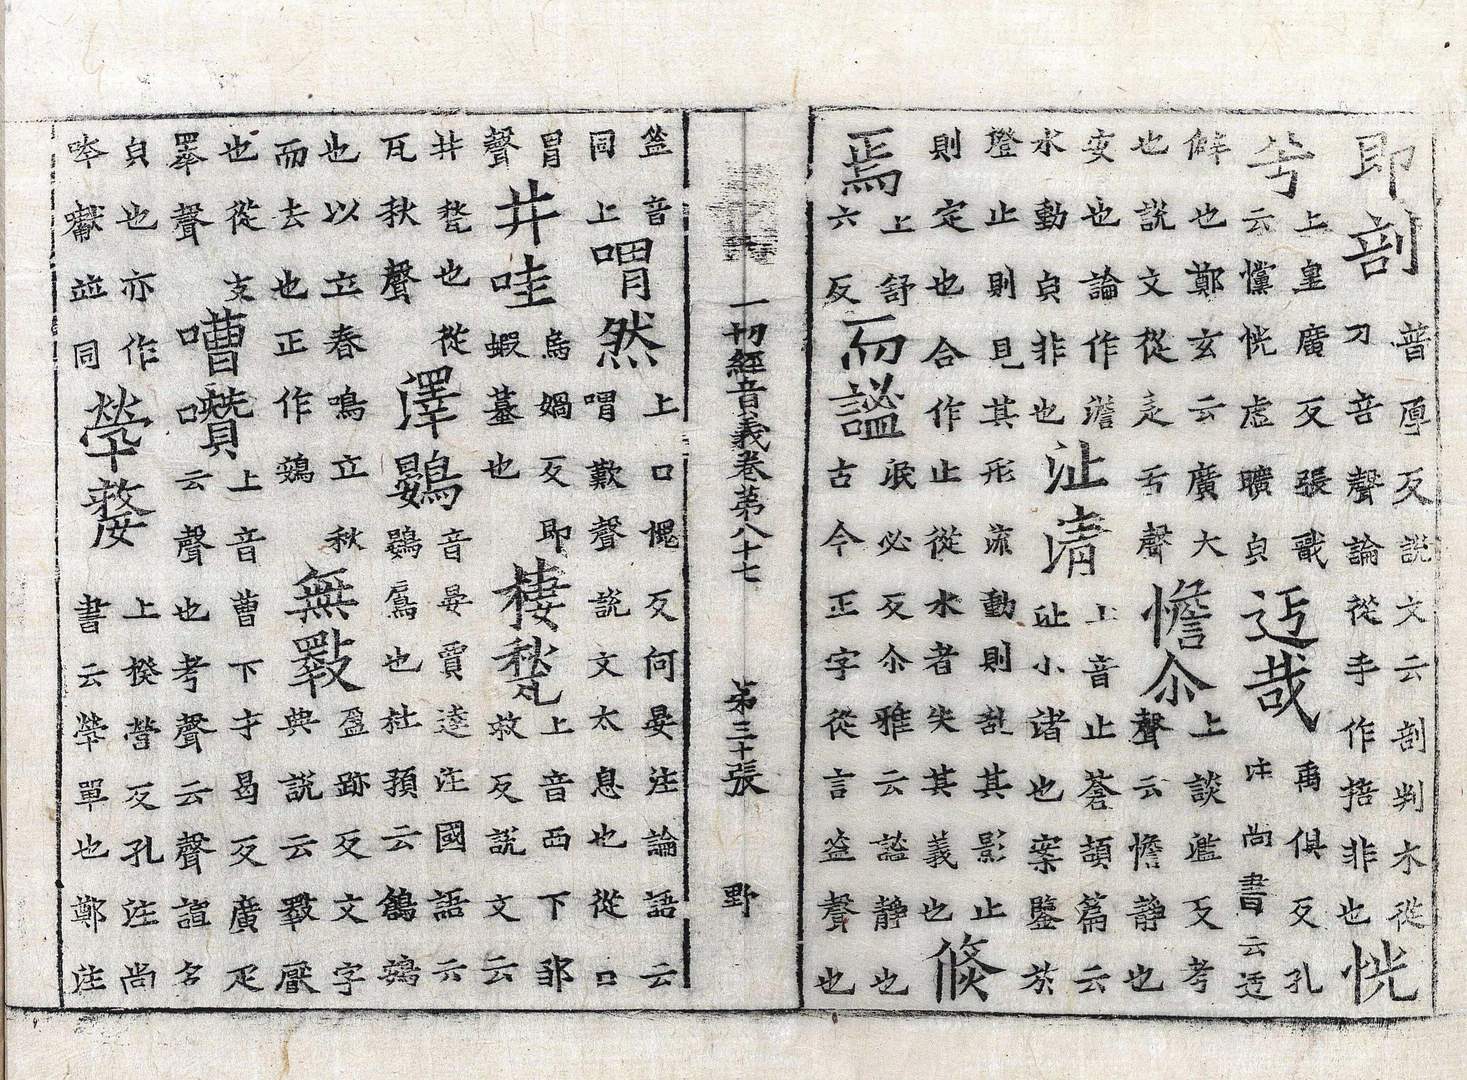 即剖普厚反說文云剖判木從刀咅聲論從手作掊非也恍
兮上皇廣反張戩云戃恍虛曠皃迃哉禹俱反孔注尚書云迃
僻也鄭玄云廣大也說文從辵亐聲憺尒上談濫反考聲云憺靜也
安也論作澹水動皃非也沚清上音止蒼頡篇云沚小渚也案鑒於
澄止則見其形流動則乱其影止則定也合作止從水者失其義也倏
焉上舒六反而謐泯必反尒雅云謐靜也古今正字從言聲也
一切經音義卷第八十七 第三十張 野
音同上喟然上口愧反何晏注論語云喟歎聲說文太息也從口
胃聲井哇烏媧反即蝦蟇也棲甃上音西下鄒救反說文云
井甃也從瓦秋聲澤鷃音晏賈逵注國語云鷃鳸也杜預云鶬鴳
也以立春鳴立秋而去也正作鴳無斁盈跡反文字典說云斁厭
也從攴睪聲嘈囋上音曹下才曷反廣疋云聲也考聲云聲諠名
皃也亦作囐並同煢嫠上揆營反孔注尚書云煢單也鄭注